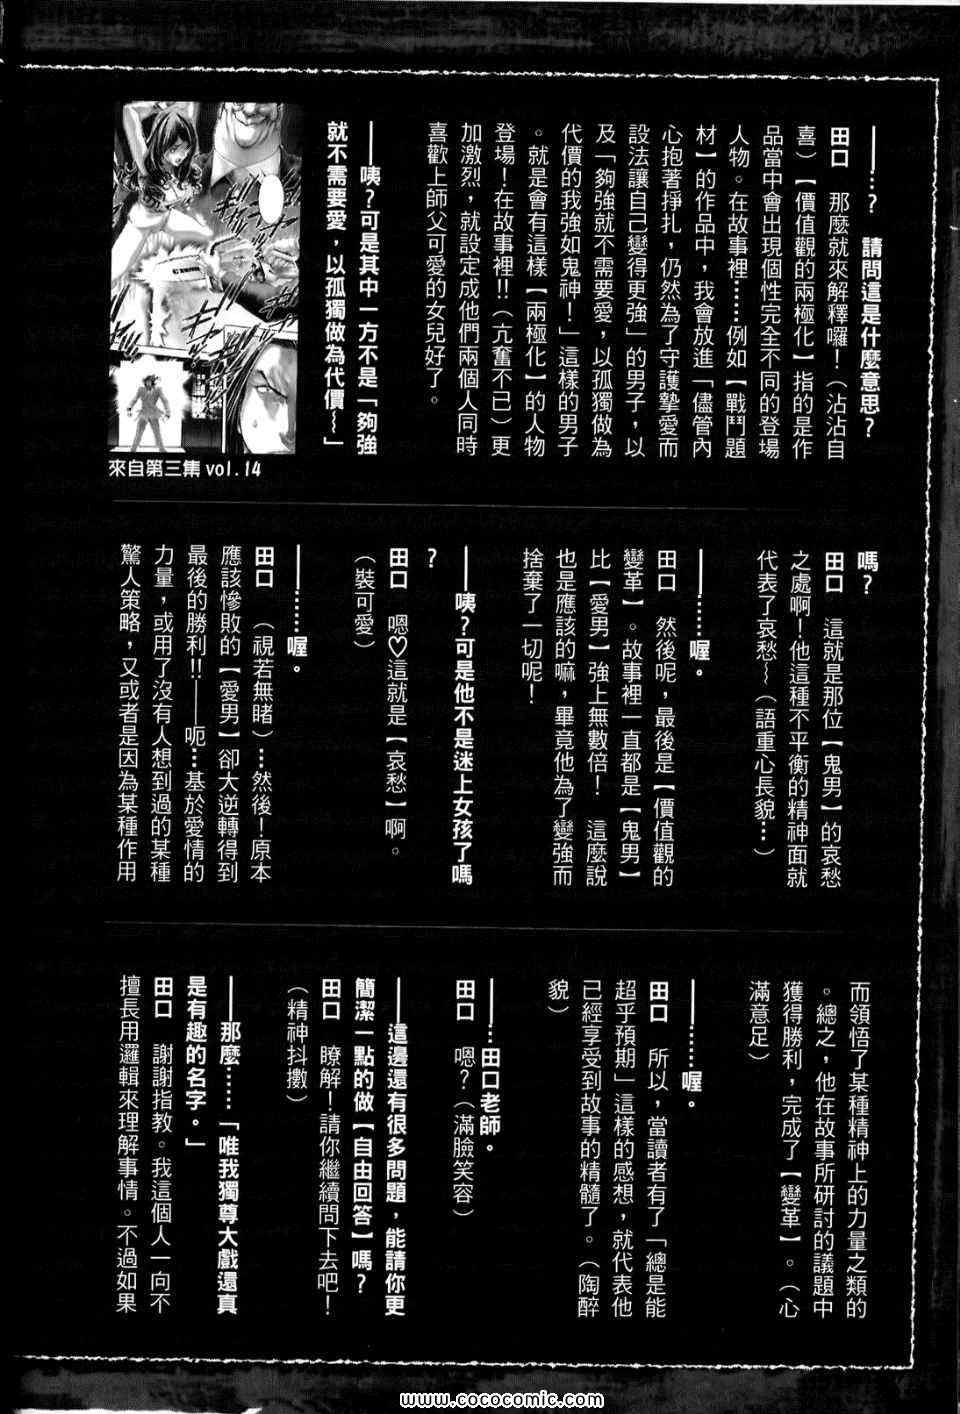 ——…？　請問這是什麼意思？
田口　那麼就來解釋囉！（沾沾自
喜）【價值觀的兩極化】指的是作
品當中會出現個性完全不同的登場
人物。在故事裡……例如【戰鬥題
材】的作品中，我會放進「儘管內
心抱著掙扎，仍然為了守護摯愛而
設法讓自己變得更強」的男子，以
及「夠強就不需要愛，以孤獨做為
代價的我強如鬼神！」這樣的男子
。就是會有這樣【兩極化】的人物
登場！在故事裡!!（亢奮不已）更
加激烈，就設定成他們兩個人同時
喜歡上師父可愛的女兒好了。
——咦？可是其中一方不是「夠強
就不需要愛，以孤獨做為代價～」
來自第三集 vol.14
嗎？
田口　這就是那位【鬼男】的哀愁
之處啊！他這種不平衡的精神面就
代表了哀愁～（語重心長貌…）
——……喔。
田口　然後呢，最後是【價值觀的
變革】。故事裡一直都是【鬼男】
比【愛男】強上無數倍！　這麼說
也是應該的嘛，畢竟他為了變強而
捨棄了一切呢！
——咦？可是他不是迷上女孩了嗎
？
田口　嗯♡這就是【哀愁】啊。
（裝可愛）
——……喔。
田口　（視若無睹）…然後！原本
應該慘敗的【愛男】卻大逆轉得到
最後的勝利!!——呃…基於愛情的
力量，或用了沒有人想到過的某種
驚人策略，又或者是因為某種作用
而領悟了某種精神上的力量之類的
。總之，他在故事所研討的議題中
獲得勝利，完成了【變革】。（心
滿意足）
——……喔。
田口　所以，當讀者有了「總是能
超乎預期」這樣的感想，就代表他
已經享受到故事的精髓了。（陶醉
貌）
——…田口老師。
田口　嗯？（滿臉笑容）
——這邊還有很多問題，能請你更
簡潔一點的做【自由回答】嗎？
田口　瞭解！請你繼續問下去吧！
（精神抖擻）
——那麼……「唯我獨尊大戲還真
是有趣的名字。」
田口　謝謝指教。我這個人一向不
擅長用邏輯來理解事情。不過如果
www.cococomic.com